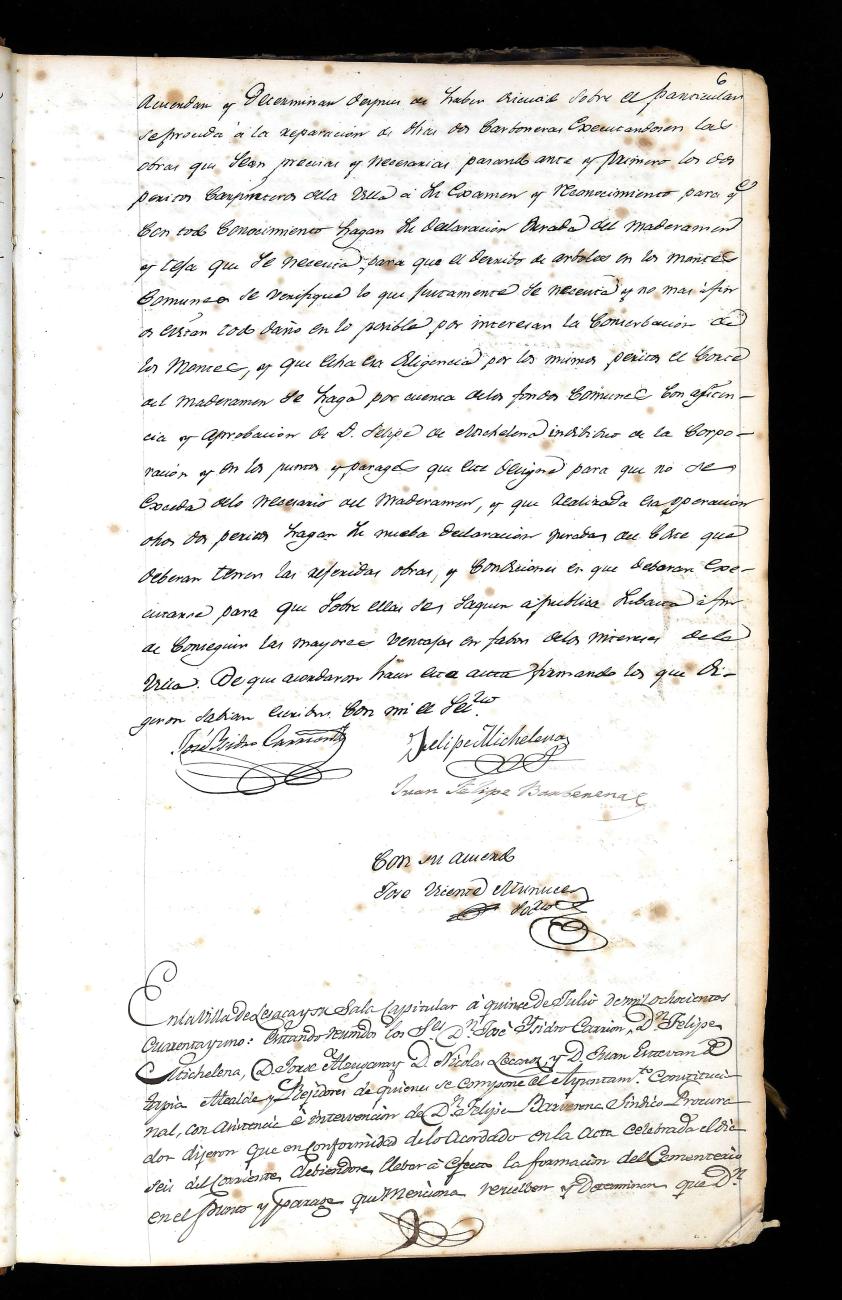 6
Acuerdan y Determinan despues de haber discutido sobre el particular
se proceda á la reparacion de dhas dos Carboneras Executandosen las
obras que sean precisas y necesarias pasando ante y primero los dos
peritos Carpinteros de la Villa á su Examen y Reconocimiento para q.e
Con todo Conocimiento hagan su declaracion Jurada del maderamen
y teja que se necesita, para que el derribo de arboles en los montes
Comunes se verifique lo que justamente se necesita y no mas á fin
de evitar todo daño en lo posible por interesar la Conserbacion de
los Montes, y que hecha esta diligencia por los mismos peritos el Corte
del maderamen se haga por cuenta de los fondos Comunes Con asisten-
cia y aprobacion de D. Felipe de Michelena indibiduo de la Corpo-
racion y en los puntos y parages que este designe para que no se
Exceda de lo necesario del Maderamen, y que realizada esta operacion
dhos dos peritos hagan su nueba declaracion jurada del Coste que
deberan tener las referidas obras, y Condiciones en que deberan Exe-
cutarse para que sobre ellas se saquen á publica subasta á fin
de Conseguir las mayores ventajas en fabor de los intereses de la
Villa. De que acordaron hacer esta acta firmando los que di-
geron sabian escribir Con mi el Sec.rio
José Ysidro Carrion Felipe Michelena
Juan Felipe Barberena
Con su acuerdo
José Vicente
Sec.rio
En la Villa de Lesaca y su Sala Capitular á quince de Julio de mil ochocientos
Cuarenta y uno: Estando reunidos los Señ.s D.n José Ysidro Carrion, D.n Felipe
Michelena, D. Jose D. Nicolas y D. Juan Estevan de
tapia Alcalde y Rejidores de quienes se compone el Ayuntam.to Constituci
nal, con asistencia é intervencion de D.n Felipe Barverena Sindico Procura
dor dijeron que en conformidad de lo Acordado en la Acta celebrada el dia
seis del corriente, debiendose llebar á efecto la formacion del Cementerio
en el Punto y Parage que menciona resuelben y Determinan que D.n